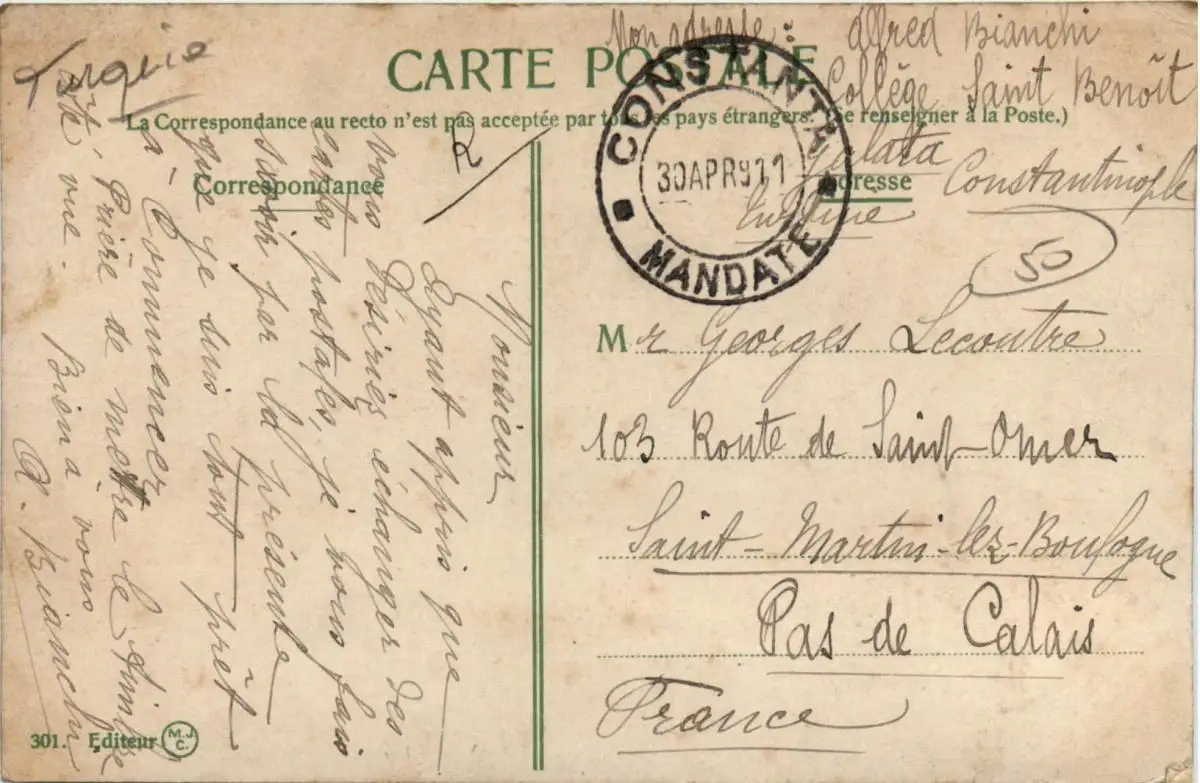 Turquie
Mon adresse : Alfred Bianchi
Collège Saint Benoît
Galata
Constantinople
Turquie
CARTE POSTALE
La Correspondance au recto n'est pas acceptée par tous les pays étrangers. (Se renseigner à la Poste.)
Correspondance
R
Adresse
CONSTANTA
30APR911
MANDATE
50
Monsieur
Ayant appris que
vous désiriez échanger des
cartes postales, je vous fais
savoir par la présente
que je suis tout prêt
à commencer
Prière de mettre le timbre
côté vue.
Bien à vous
A. Bianchi
Mr Georges Lecoutre
103 Route de Saint-Omer
Saint-Martin-lez-Boulogne
Pas de Calais
France
301. Editeur M.J.C.